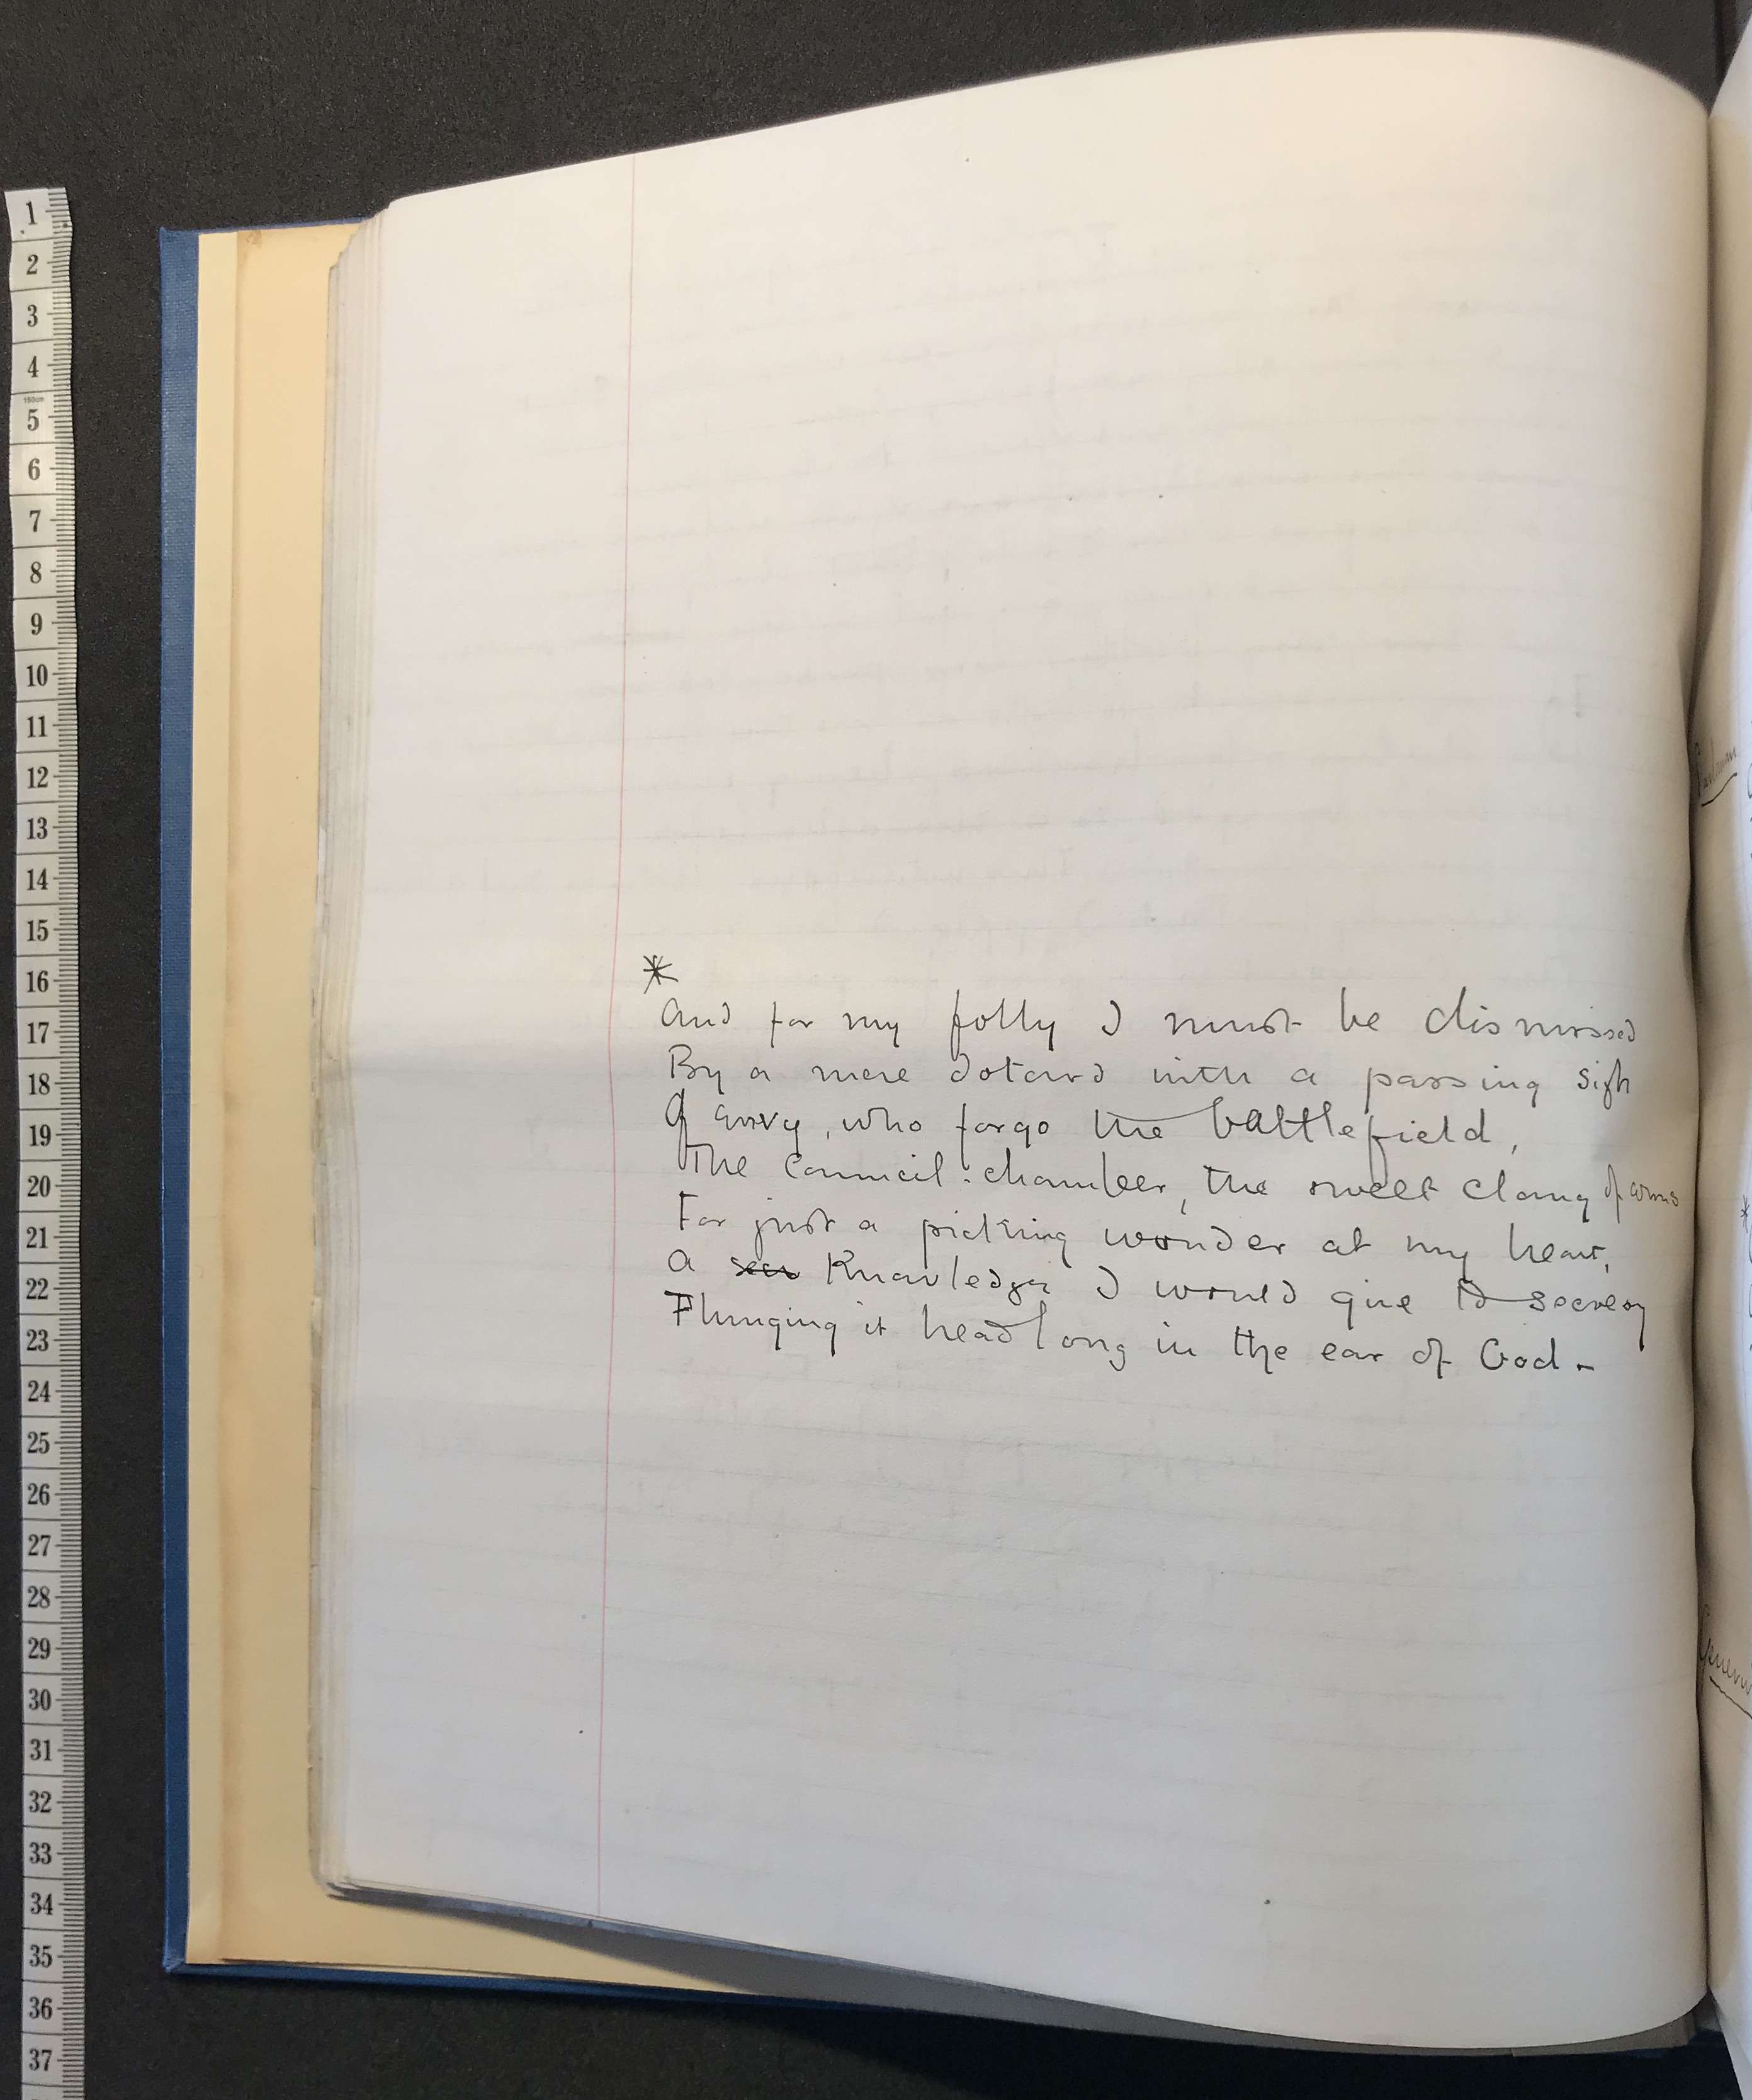 *
And for my folly I must be dismissed
By a mere dotard with a passing sigh
Of envy, who forgo the battlefield,
The Council-chamber, the sweet clang of arms
For just a pricking wonder at my heart,
A Knowledge I would give to secrecy
Flinging it headlong in the ear of God -
1
2
3
4
150cm
5
6
7
8
9
10
11
12
13
14
15
16
17
18
19
20
21
22
23
24
25
26
27
28
29
30
31
32
33
34
35
36
37